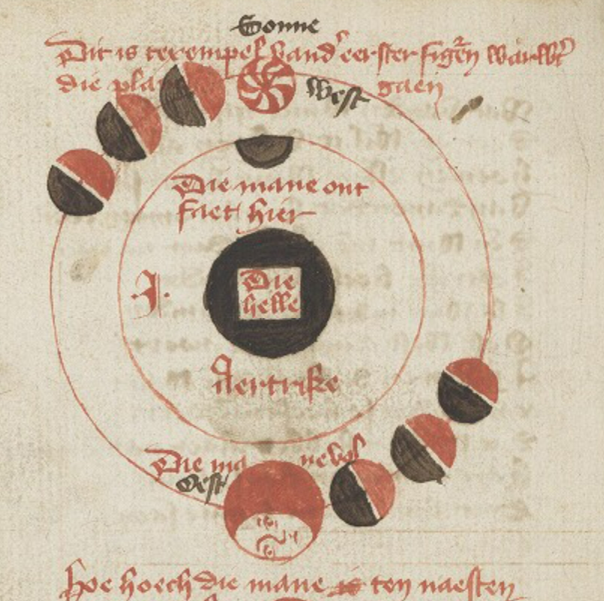 Sonne
Dit is texempel vand' eerster figuren waerwt
die pla
west gaen
Die mane ont
faet hier
Die
helle
Aertrike
Die ma nevol
Oest
hoe hoech die mane is ten naesten